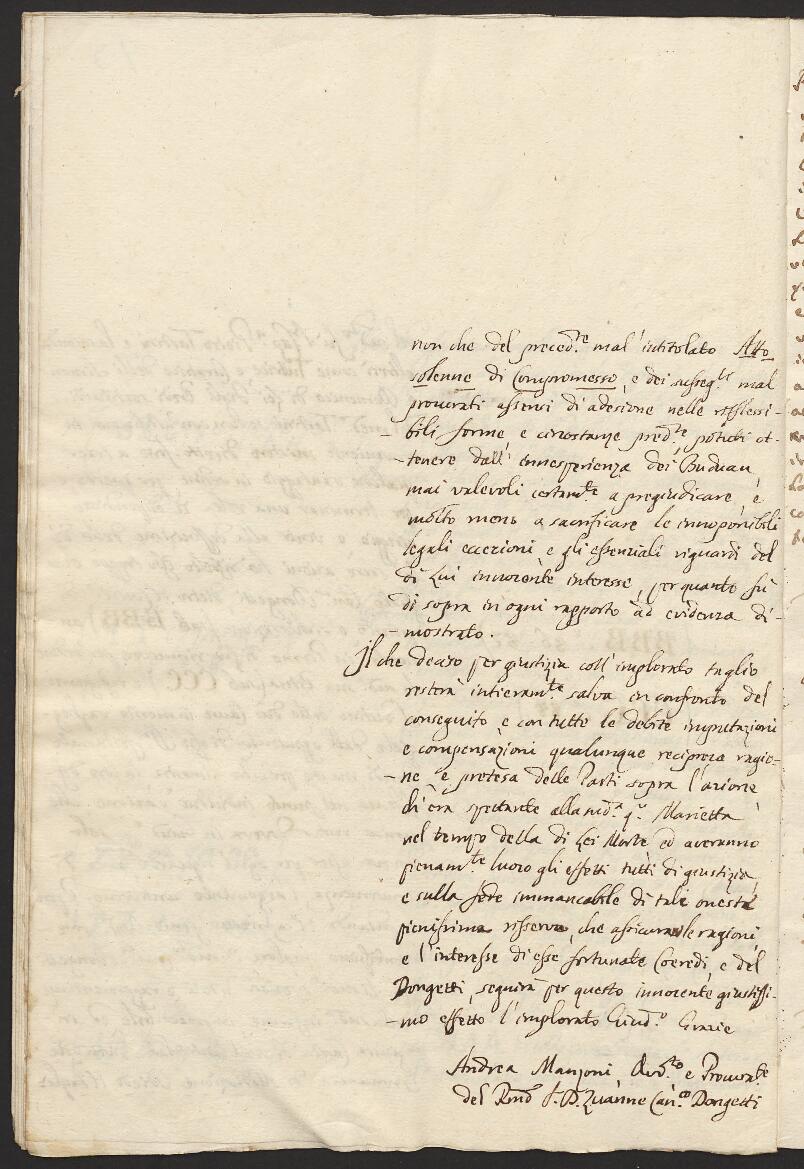 non che del preced.te mal' intitolato Atto
solenne di Compromesso, e dei susseg.ti mal
procurati assensi di adesione nelle riflessi-
-bili forme, e circostanze pred.te, potuti ot-
-tenere dall' innesperienza dei Buduan
mai valevoli certam.te a pregiudicare, e
molto meno a sacrificare le innoponibili
legali eccezioni, e gli essenziali riguardi del
di Lui innocente interesse, per quanto fù
di sopra in ogni rapporto ad evidenza di-
-mostrato.
Il che deciso per giustizia coll' implorato taglio
resterà intieram.te salva in confronto del
conseguito, e con tutte le debite imputazioni
e compensazioni qualunque reciproca ragio-
-ne, e pretesa delle Parti sopra l' azione
ch' era spettante alla sud.a q.m Marietta
nel tempo della di Lei Morte, ed averanno
pienam.te luoco gli effetti tutti di giustizia,
e sulla fede immancabile di tale onesta
pienissima risserva, che assicura le ragioni,
e l' interesse di esse fortunate Coeredi, e del
Dongetti, seguirà per questo innocente giustissi-
-mo effetto l' implorato Giud.o Grazie
Andrea Manzoni Avv.to e Procurat.e
del Rmd.o S.r D. Zuanne Can.co Dongetti